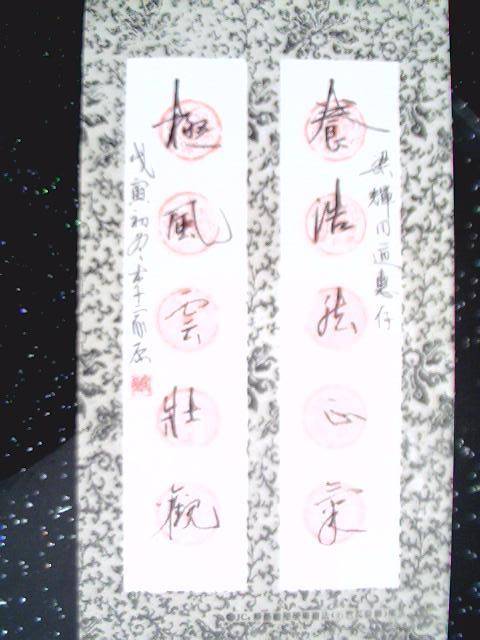 養浩然正氣
梁輝同道惠存
極風雲壯觀
戊寅初冬